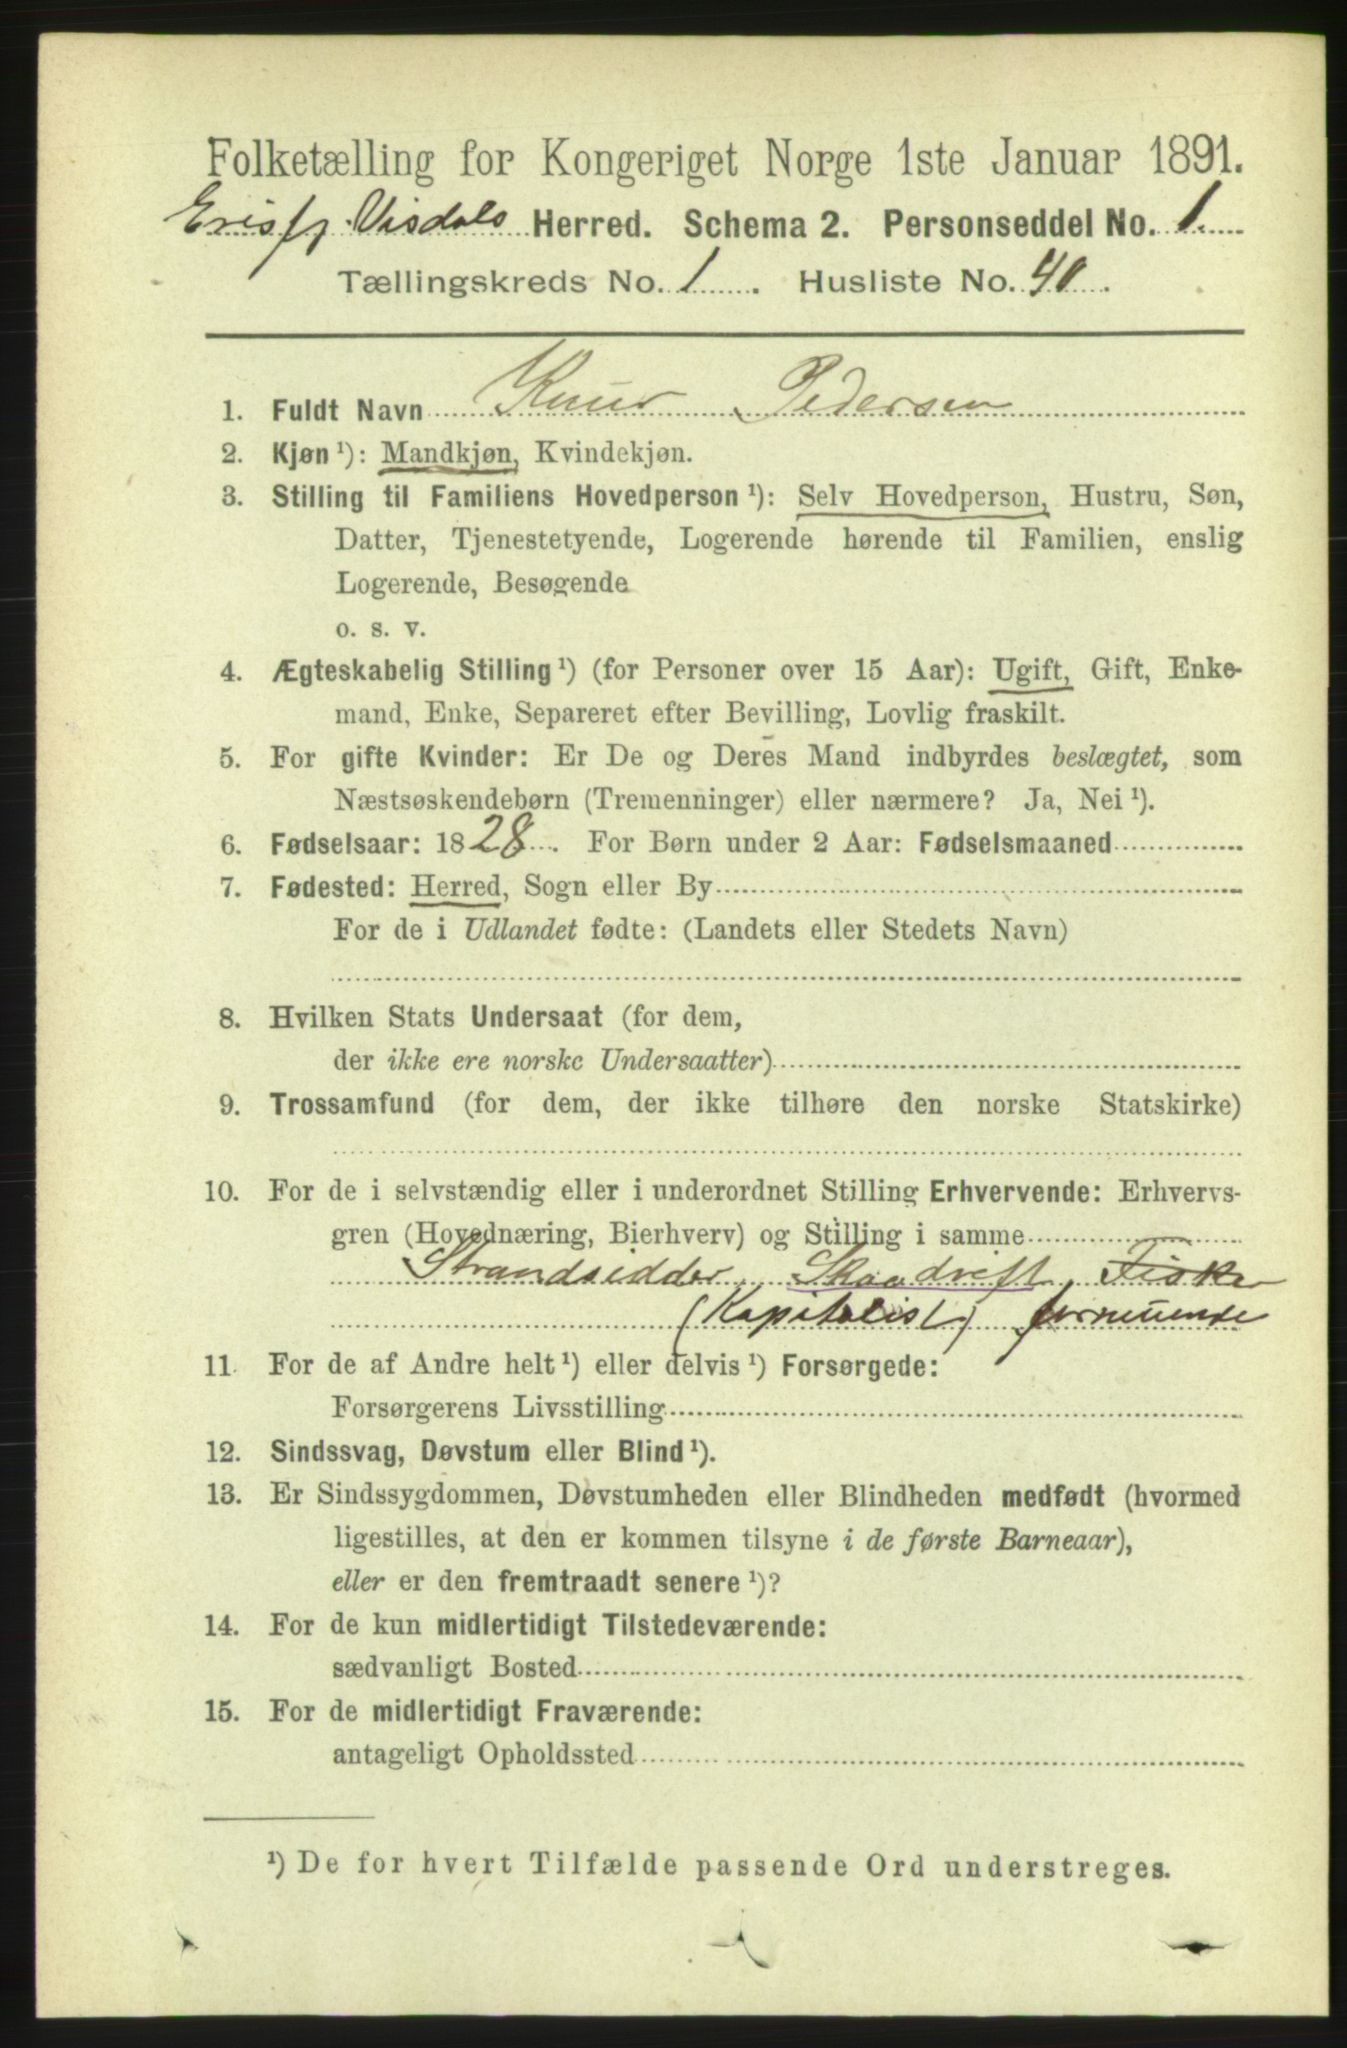 Folketælling for Kongeriget Norge 1ste Januar 1891.
Erisfj. Visdals Herred. Schema 2. Personseddel No. 1.
Tællingskreds No. 1. Husliste No. 40.
1. Fuldt Navn Knud Pedersen
2. Kjøn ¹): Mandkjøn, Kvindekjøn.
3. Stilling til Familiens Hovedperson ¹): Selv Hovedperson, Hustru, Søn,
Datter, Tjenestetyende, Logerende hørende til Familien, enslig
Logerende, Besøgende
o. s. v.
4. Ægteskabelig Stilling ¹) (for Personer over 15 Aar): Ugift, Gift, Enke-
mand, Enke, Separeret efter Bevilling, Lovlig fraskilt.
5. For gifte Kvinder: Er De og Deres Mand indbyrdes beslægtet, som
Næstsøskendebørn (Tremenninger) eller nærmere? Ja, Nei ¹).
6. Fødselsaar: 1828. For Børn under 2 Aar: Fødselsmaaned
7. Fødested: Herred, Sogn eller By
For de i Udlandet fødte: (Landets eller Stedets Navn)
8. Hvilken Stats Undersaat (for dem,
der ikke ere norske Undersaatter)
9. Trossamfund (for dem, der ikke tilhøre den norske Statskirke)
10. For de i selvstændig eller i underordnet Stilling Erhvervende: Erhvervs-
gren (Hovednæring, Bierhverv) og Stilling i samme
Strandsidder, Skovdrift, Fisker
(Kapitalist) fornuende
11. For de af Andre helt ¹) eller delvis ¹) Forsørgede:
Forsørgerens Livsstilling
12. Sindssvag, Døvstum eller Blind ¹).
13. Er Sindssygdommen, Døvstumheden eller Blindheden medfødt (hvormed
ligestilles, at den er kommen tilsyne i de første Barneaar),
eller er den fremtraadt senere ¹)?
14. For de kun midlertidigt Tilstedeværende:
sædvanligt Bosted
15. For de midlertidigt Fraværende:
antageligt Opholdssted
¹) De for hvert Tilfælde passende Ord understreges.